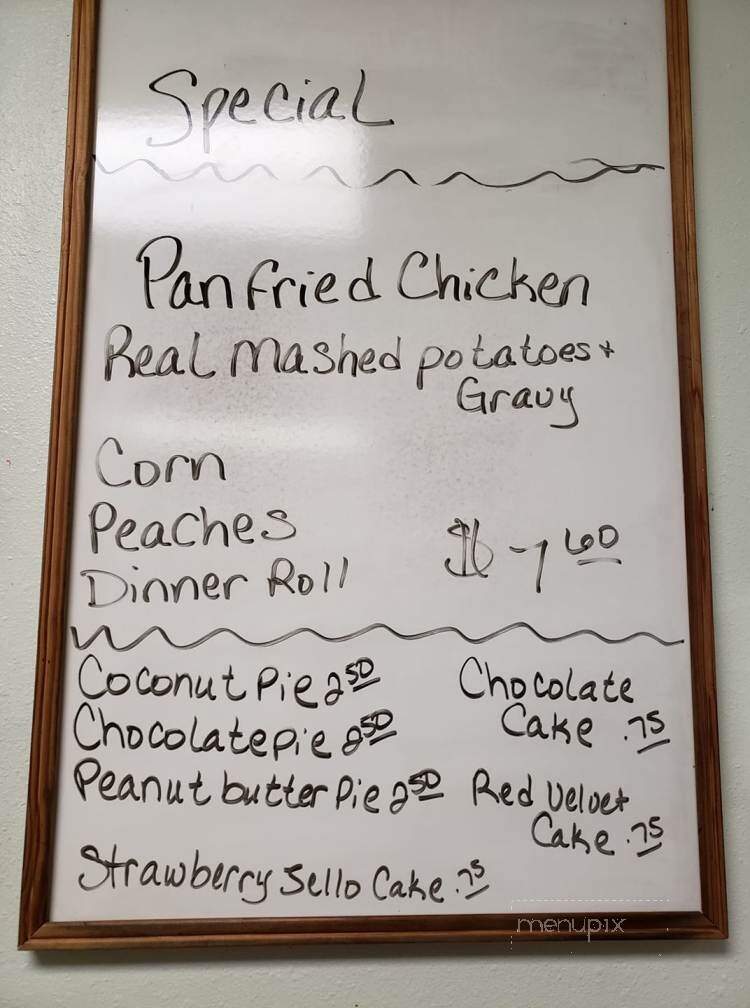 Special
Pan Fried Chicken
Real Mashed potatoes +
Gravy
Corn
Peaches
Dinner Roll
$ 7 60
Coconut Pie 2 50
Chocolate pie 2 50
Peanut butter Pie 2 50
Chocolate
Cake .75
Red Velvet
Cake .75
Strawberry Jello Cake .75
menupix